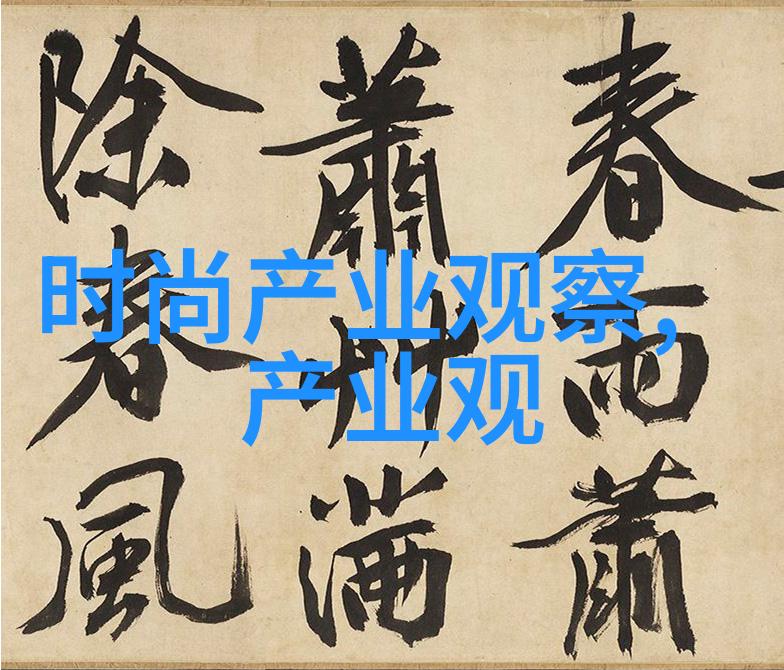 时尚产业观察,
产业观
春雨蕭
蕭艸滿
除春風